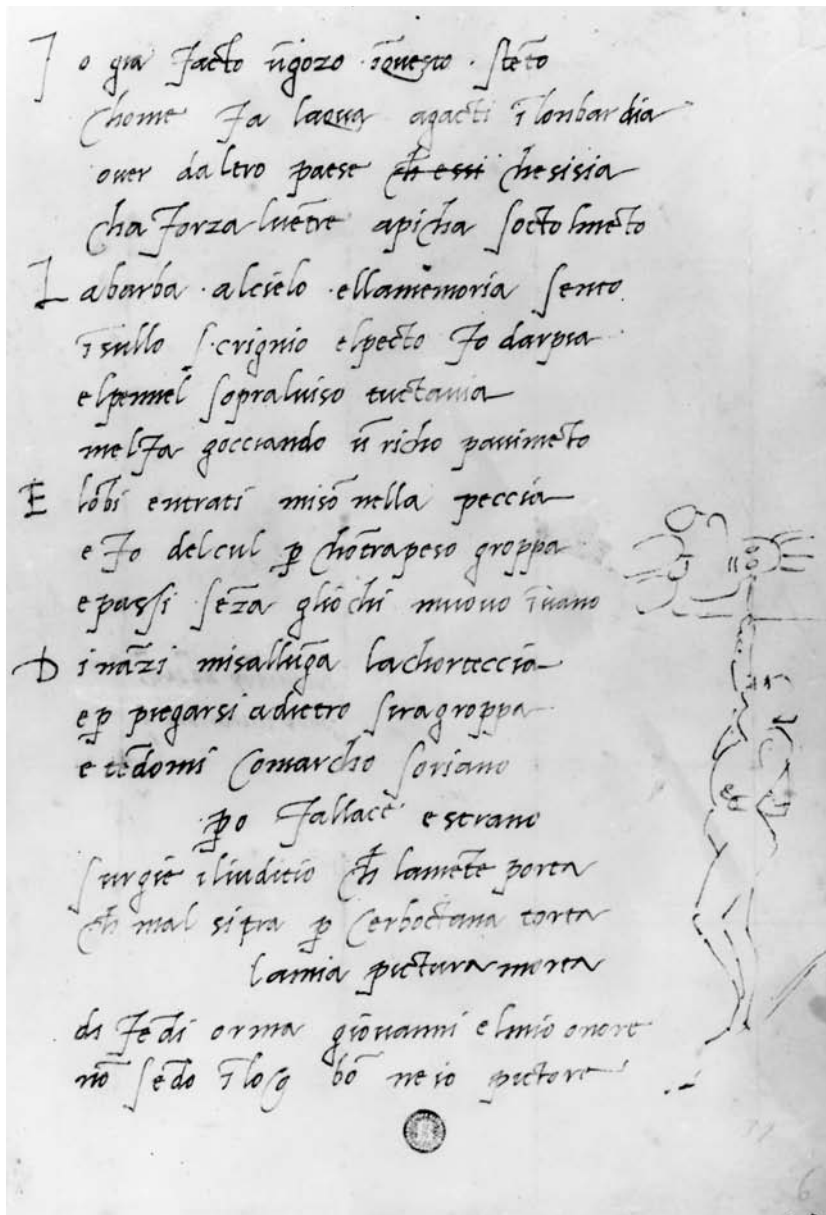 Io gia facto ūgozo īquesto stēto
chome fa laqua agacti ī lonbardia
over daltro paese ch̄ essi chesisia
cha forza lvētre apicha socto lmēto
La barba alcielo ellamemoria sento
īsullo scrignio elpecto fo darpia
elpennel sopralviso tuctavia
melfa gocciando ū richo pavimēto
E lōbi entrati misō nella peccia
e fo delcul p̄ chōtrapeso groppa
epassi sēza gliochi muovo īvano
Dināzi misallūga lachorteccia
ep̄ piegarsi adietro siragroppa
e tēdomi comarcho soriano
p̄o fallace e strano
surgie iliuditio ch̄ lamēte porta
ch̄ mal sitra p̄ cerboctana torta
lamia pictura morta
difēdi orma giovanni elmio onore
nō sēdo īloco bō ne io pictore
6